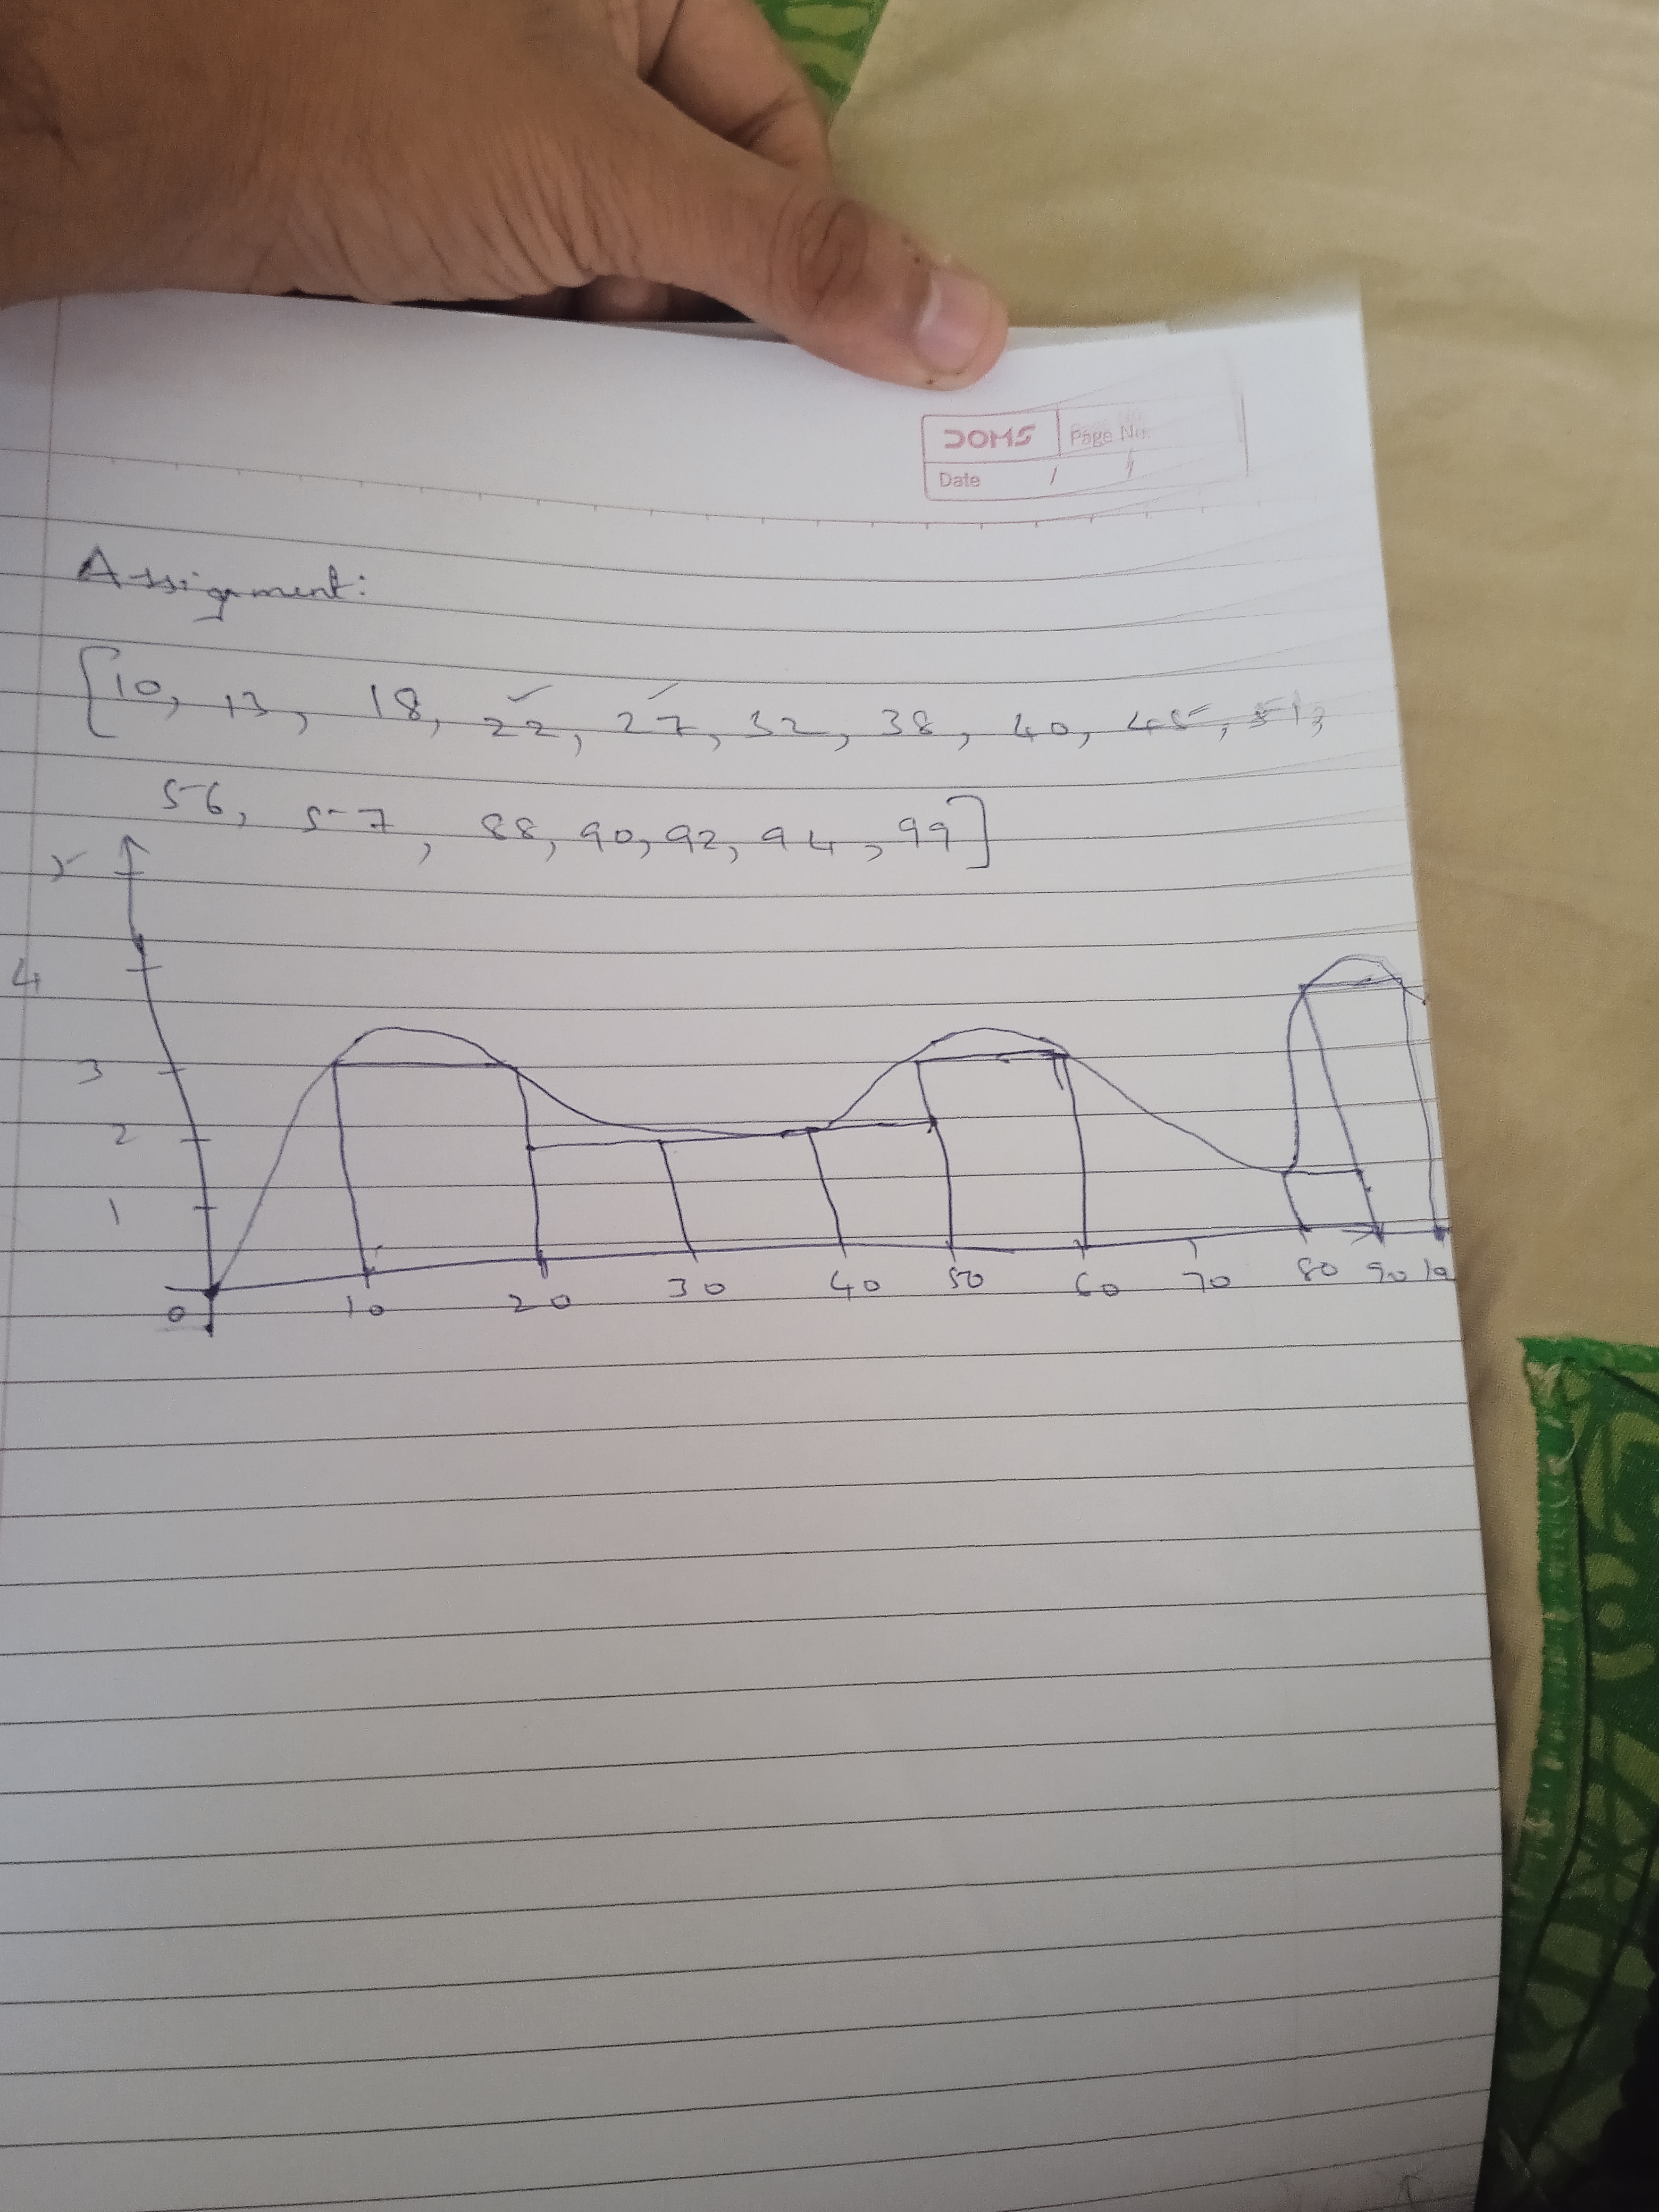 DOMS Page No.
Date / /
Assignment:
[10, 13, 18, 22, 27, 32, 38, 40, 45, 51,
56, 57, 88, 90, 92, 94, 99]
Y
4
3
2
1
0 10 20 30 40 50 60 70 80 90 10